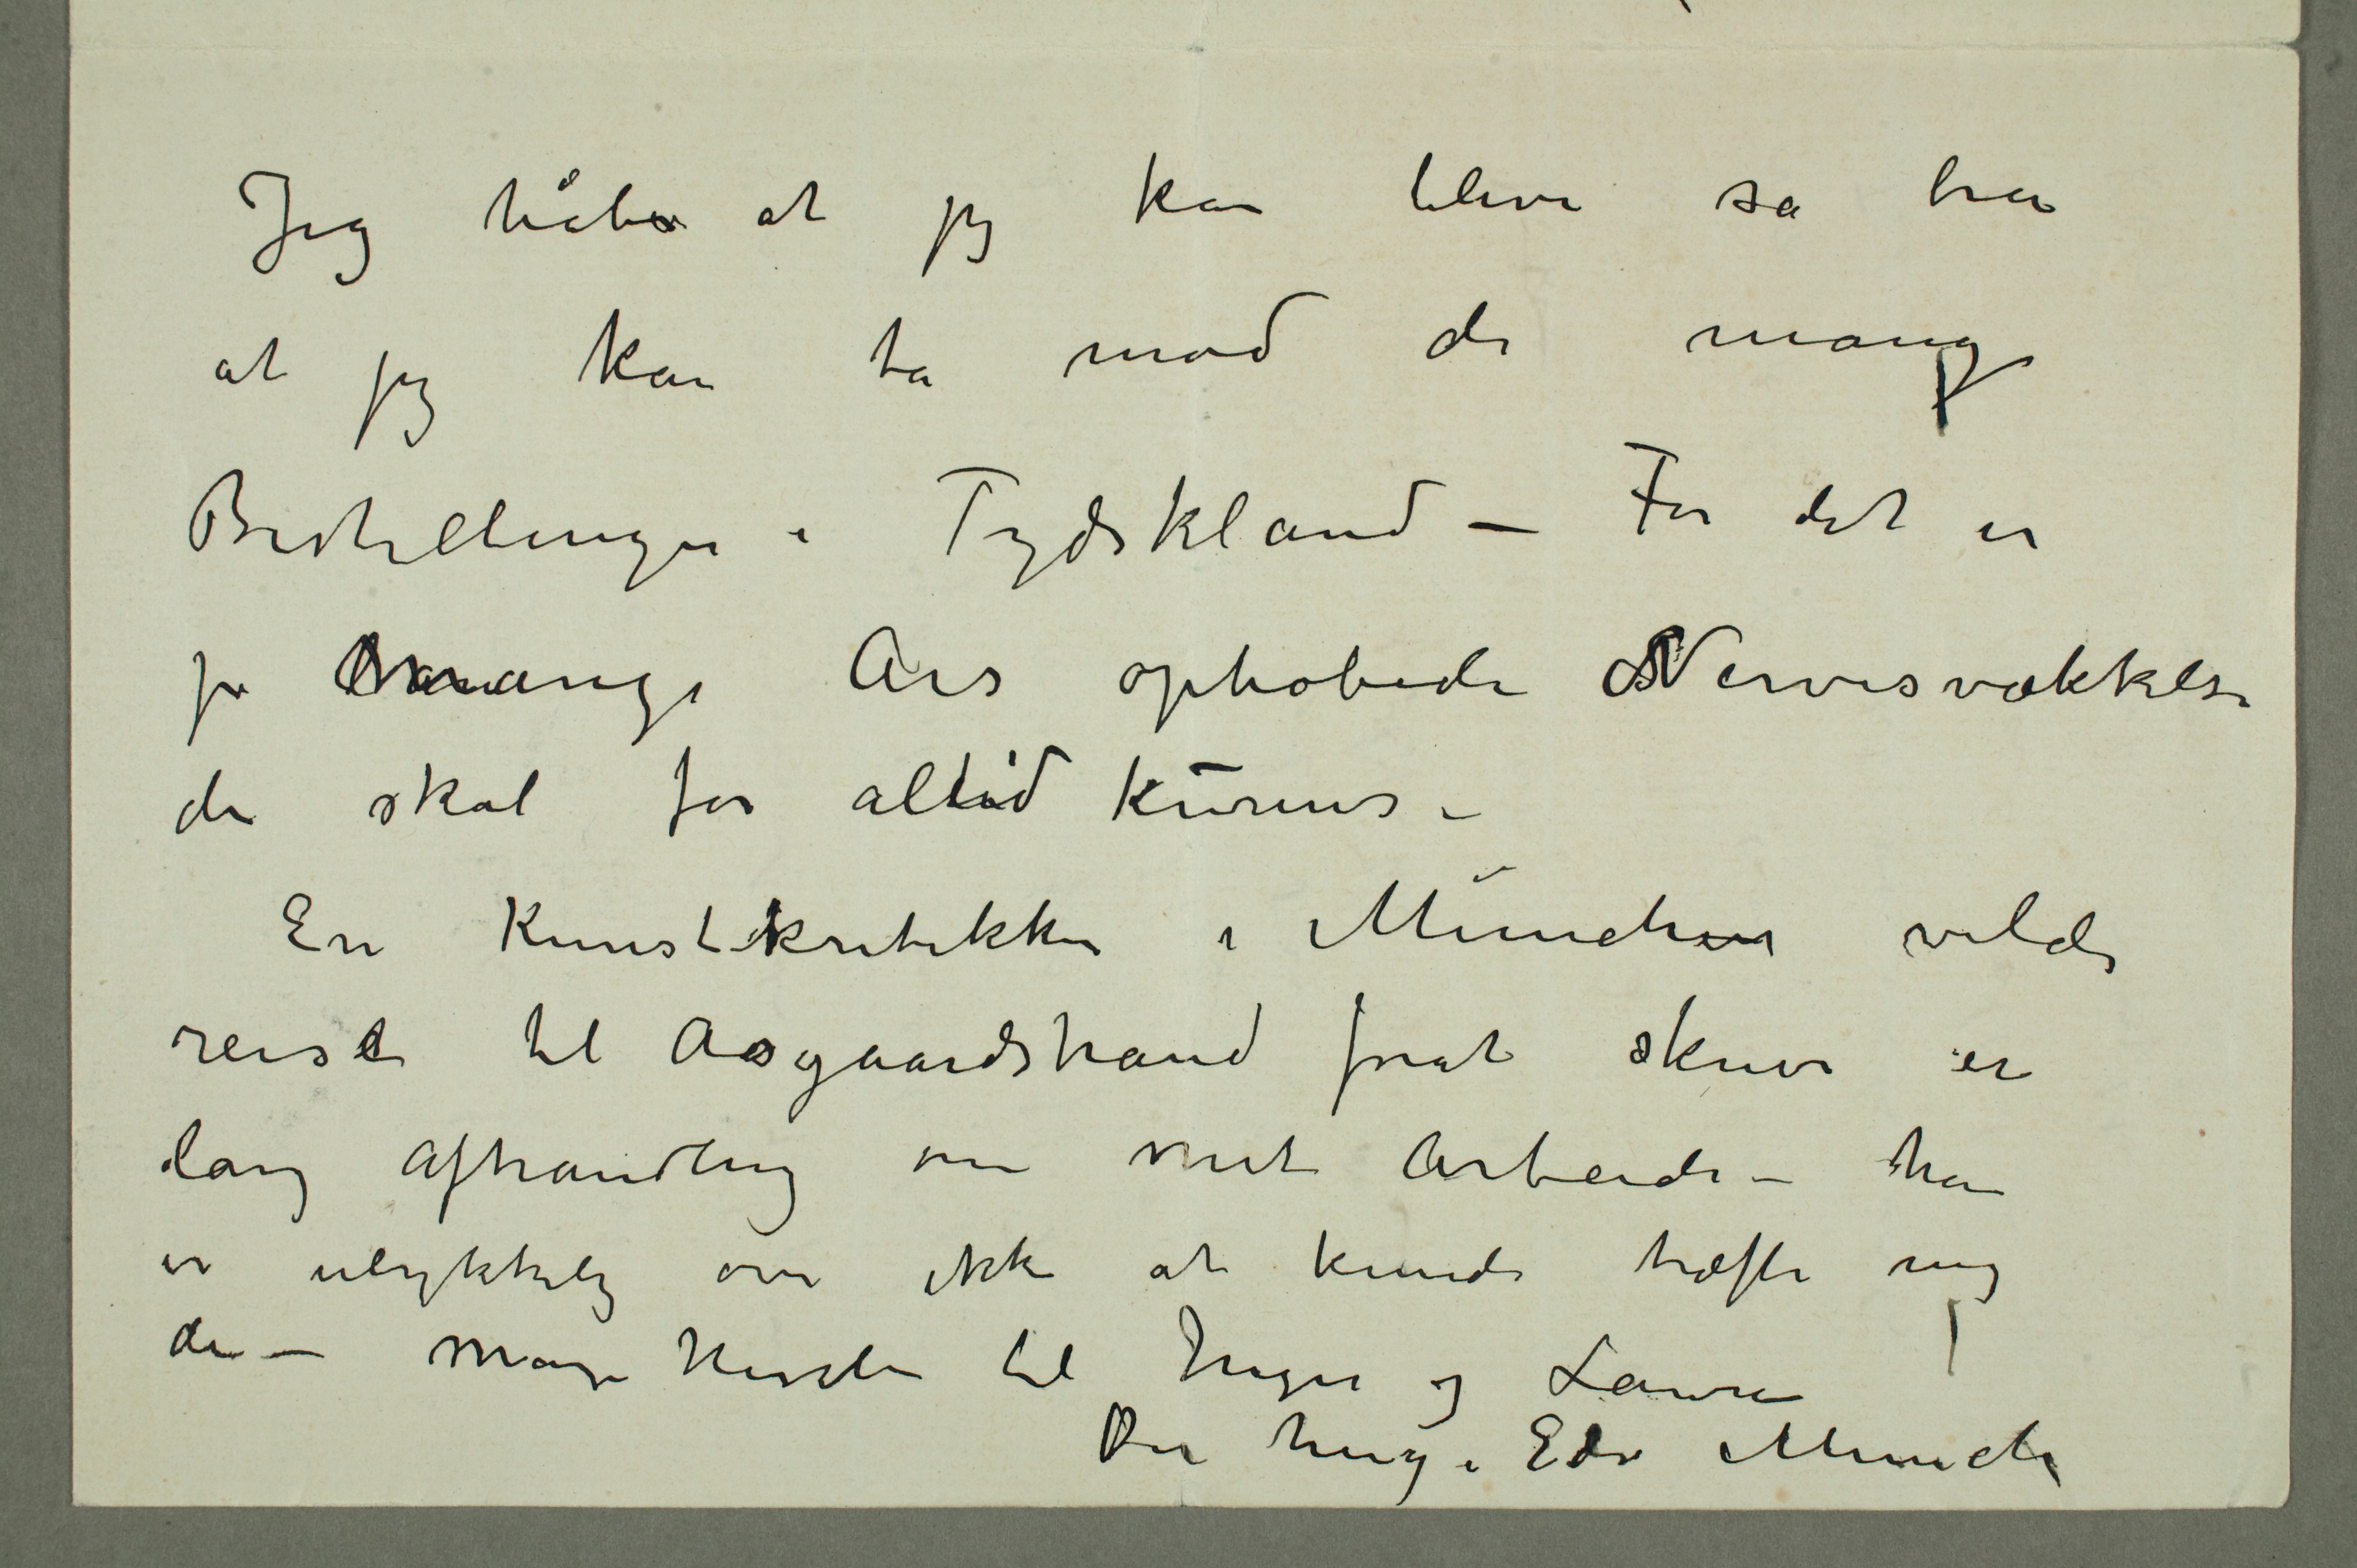 Jeg håber at jeg kan blive så bra
at jeg kan ta mod de mange
Bestillinger i Tydskland – For det er
jo mange Års ophobede Nervesvækkelse
der skal for altid kureres –
En Kunstkritikker i München vilde
reise til Aasgaardstrand forat skrive en
lang Afhandling om mit Arbeide – han
er ulykkelig over ikke at kunde træffe mig
der – Mange Hilsener til Inger og Laura
Din hengi. Edv Munch